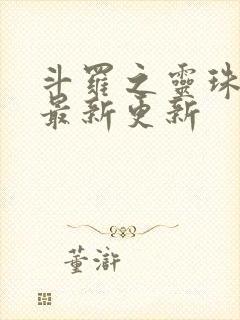 斗羅之靈珠
最新更新
董滸